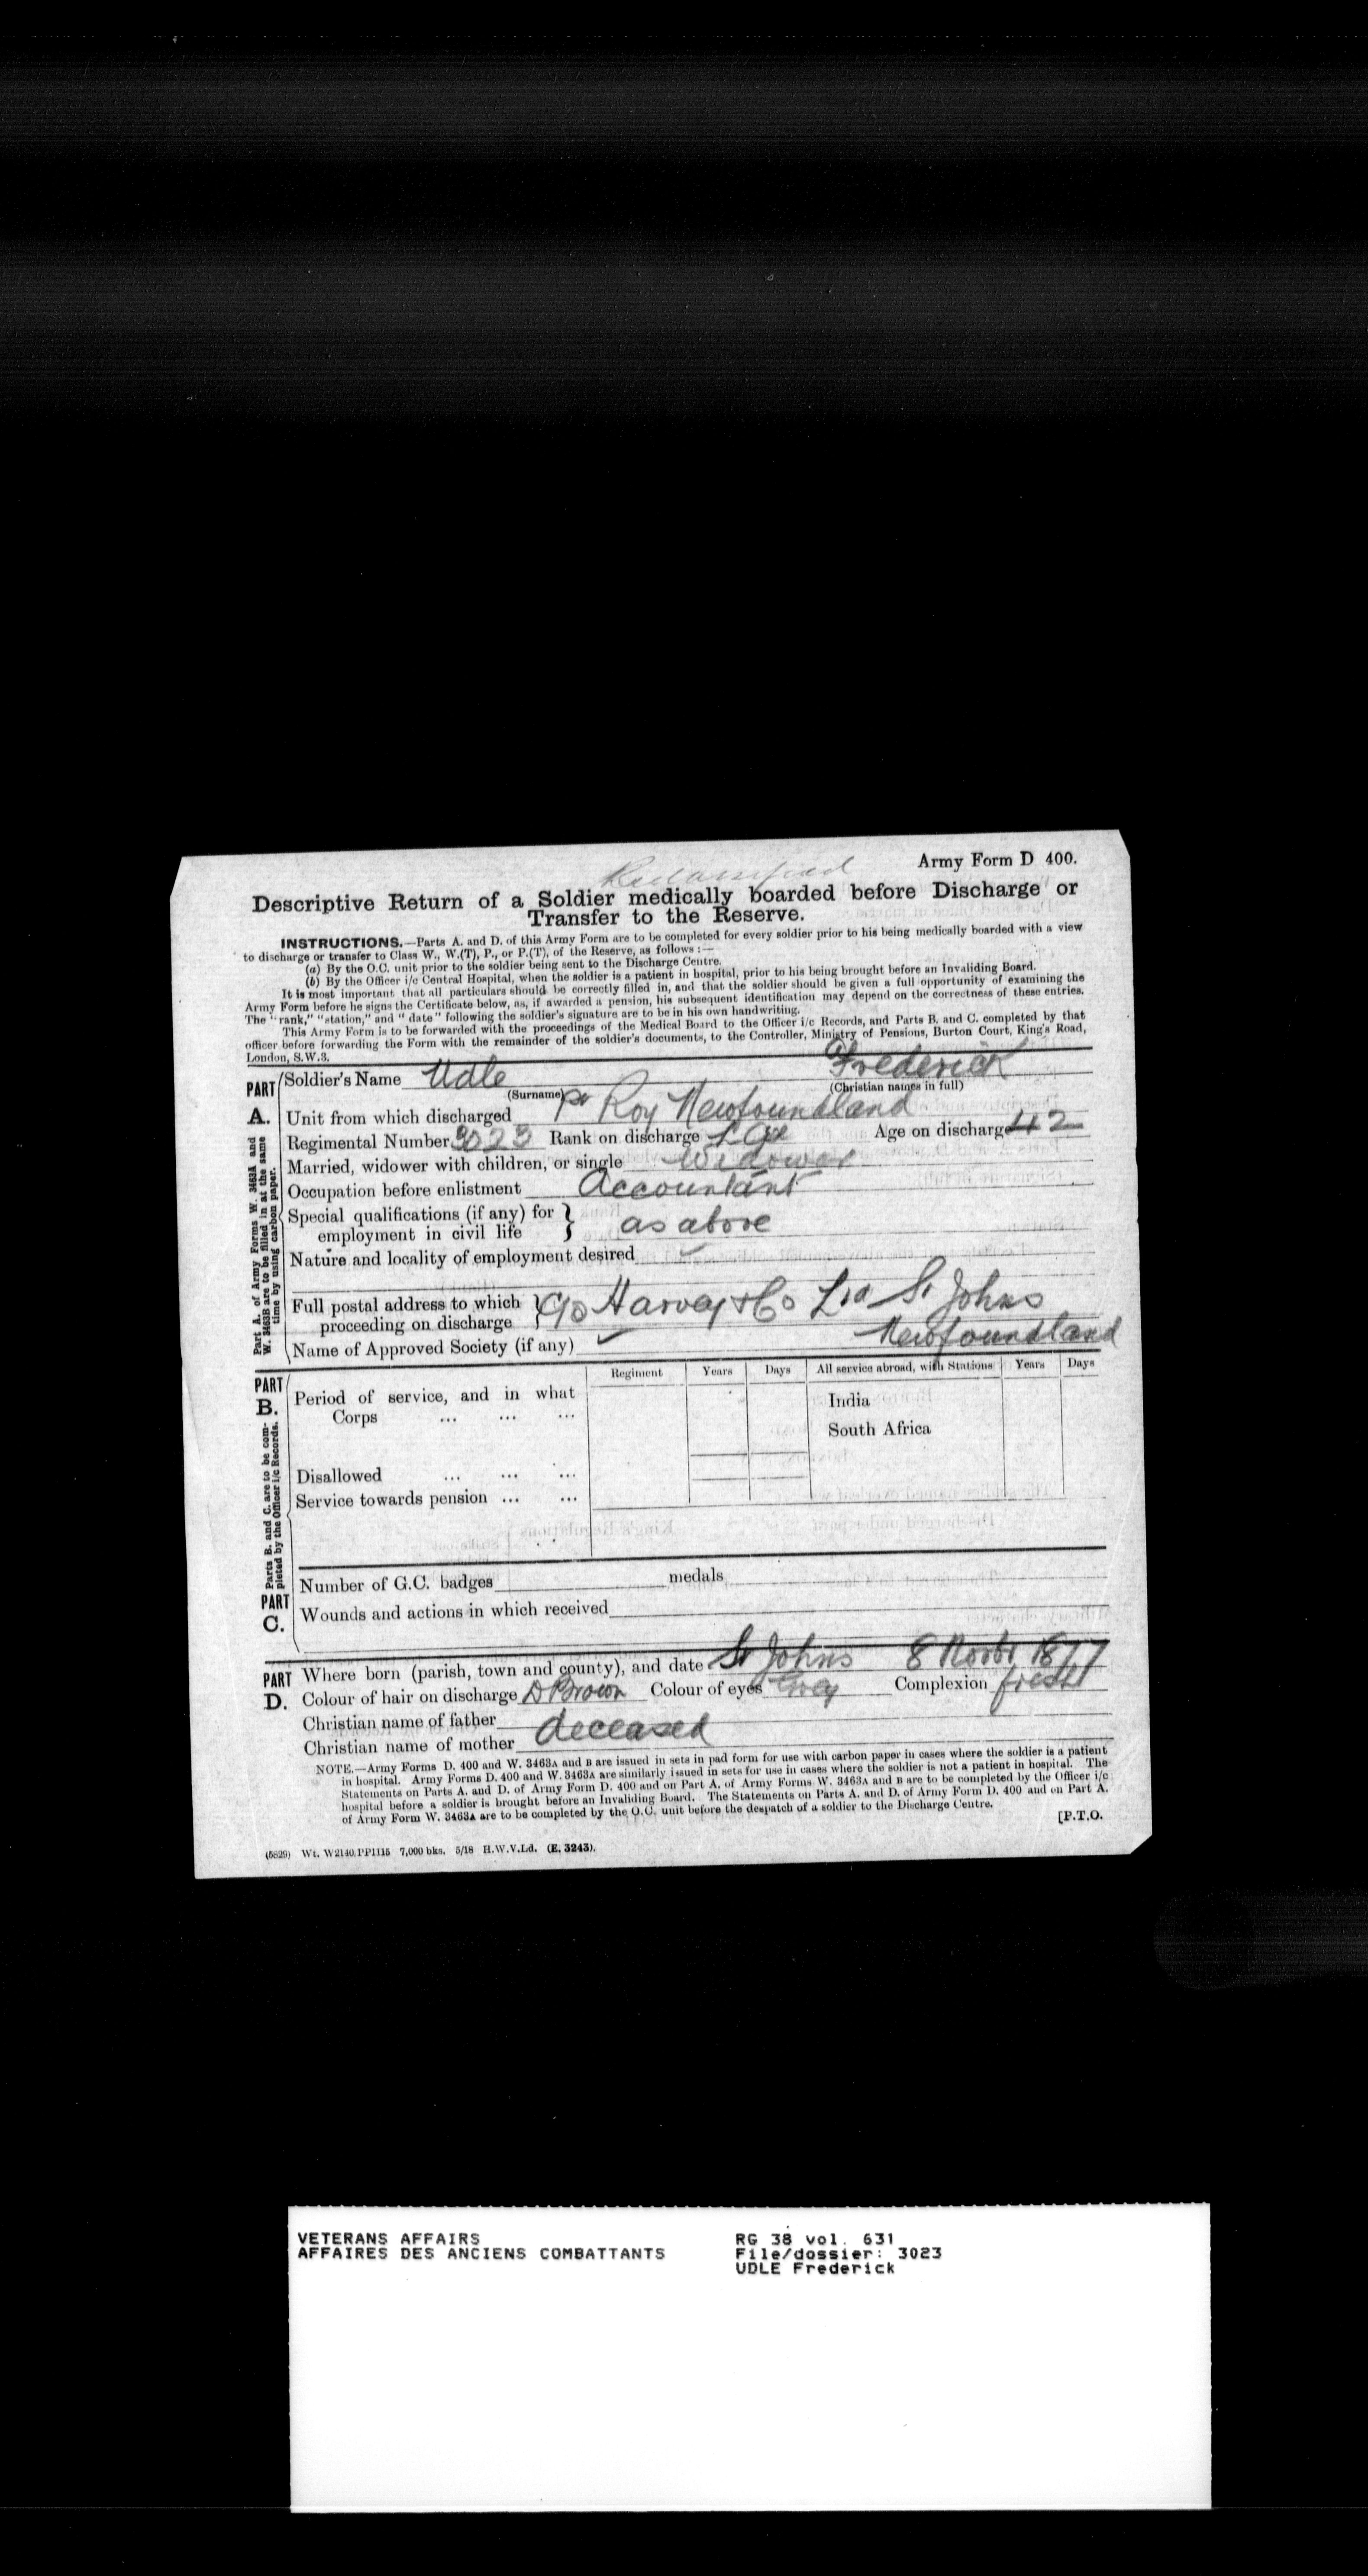 Reclassified
Army Form D 400.
Descriptive Return of a Soldier medically boarded before Discharge or
Transfer to the Reserve.
INSTRUCTIONS.—Parts A. and D. of this Army Form are to be completed for every soldier prior to his being medically boarded with a view
to discharge or transfer to Class W., W.(T), P., or P.(T), of the Reserve, as follows :—
(a) By the O.C. unit prior to the soldier being sent to the Discharge Centre.
(b) By the Officer i/c Central Hospital, when the soldier is a patient in hospital, prior to his being brought before an Invaliding Board.
It is most important that all particulars should be correctly filled in, and that the soldier should be given a full opportunity of examining the
Army Form before he signs the Certificate below, as, if awarded a pension, his subsequent identification may depend on the correctness of these entries.
The "rank," "station," and "date" following the soldier's signature are to be in his own handwriting.
This Army Form is to be forwarded with the proceedings of the Medical Board to the Officer i/c Records, and Parts B. and C. completed by that
officer before forwarding the Form with the remainder of the soldier's documents, to the Controller, Ministry of Pensions, Burton Court, King's Road,
London, S.W.3.
PART A.
Part A. of Army Forms W. 3463A and
W. 3463B are to be filled in at the same
time by using carbon paper.
Soldier's Name Udle Frederick
(Surname) (Christian names in full)
Unit from which discharged Roy Newfoundland
Regimental Number 3023 Rank on discharge L Cpl Age on discharge 42
Married, widower with children, or single Widower
Occupation before enlistment Accountant
Special qualifications (if any) for
employment in civil life } as above
Nature and locality of employment desired
Full postal address to which
proceeding on discharge } C/o Harvey & Co Ltd St Johns
Newfoundland
Name of Approved Society (if any)
PART B.
Parts B. and C. are to be com-
pleted by the Officer i/c Records.
Regiment Years Days All service abroad, with Stations Years Days
Period of service, and in what
Corps ... ... ...
India
South Africa
Disallowed ... ... ...
Service towards pension ... ...
PART C.
Number of G.C. badges medals
Wounds and actions in which received
PART D.
Where born (parish, town and county), and date St Johns 8 Novbr 1877
Colour of hair on discharge D Brown Colour of eyes Grey Complexion fresh
Christian name of father
Christian name of mother deceased
NOTE.—Army Forms D. 400 and W. 3463A and B are issued in sets in pad form for use with carbon paper in cases where the soldier is a patient
in hospital. Army Forms D. 400 and W. 3463A are similarly issued in sets for use in cases where the soldier is not a patient in hospital. The
Statements on Parts A. and D. of Army Form D. 400 and on Part A. of Army Forms W. 3463A and B are to be completed by the Officer i/c
hospital before a soldier is brought before an Invaliding Board. The Statements on Parts A. and D. of Army Form D. 400 and on Part A.
of Army Form W. 3463A are to be completed by the O.C. unit before the despatch of a soldier to the Discharge Centre.
[P.T.O.
(5829) Wt. W2140, PP1115 7,000 bks. 5/18 H.W.V.Ld. (E. 3243).
VETERANS AFFAIRS
AFFAIRES DES ANCIENS COMBATTANTS
RG 38 vol. 631
File/dossier: 3023
UDLE Frederick